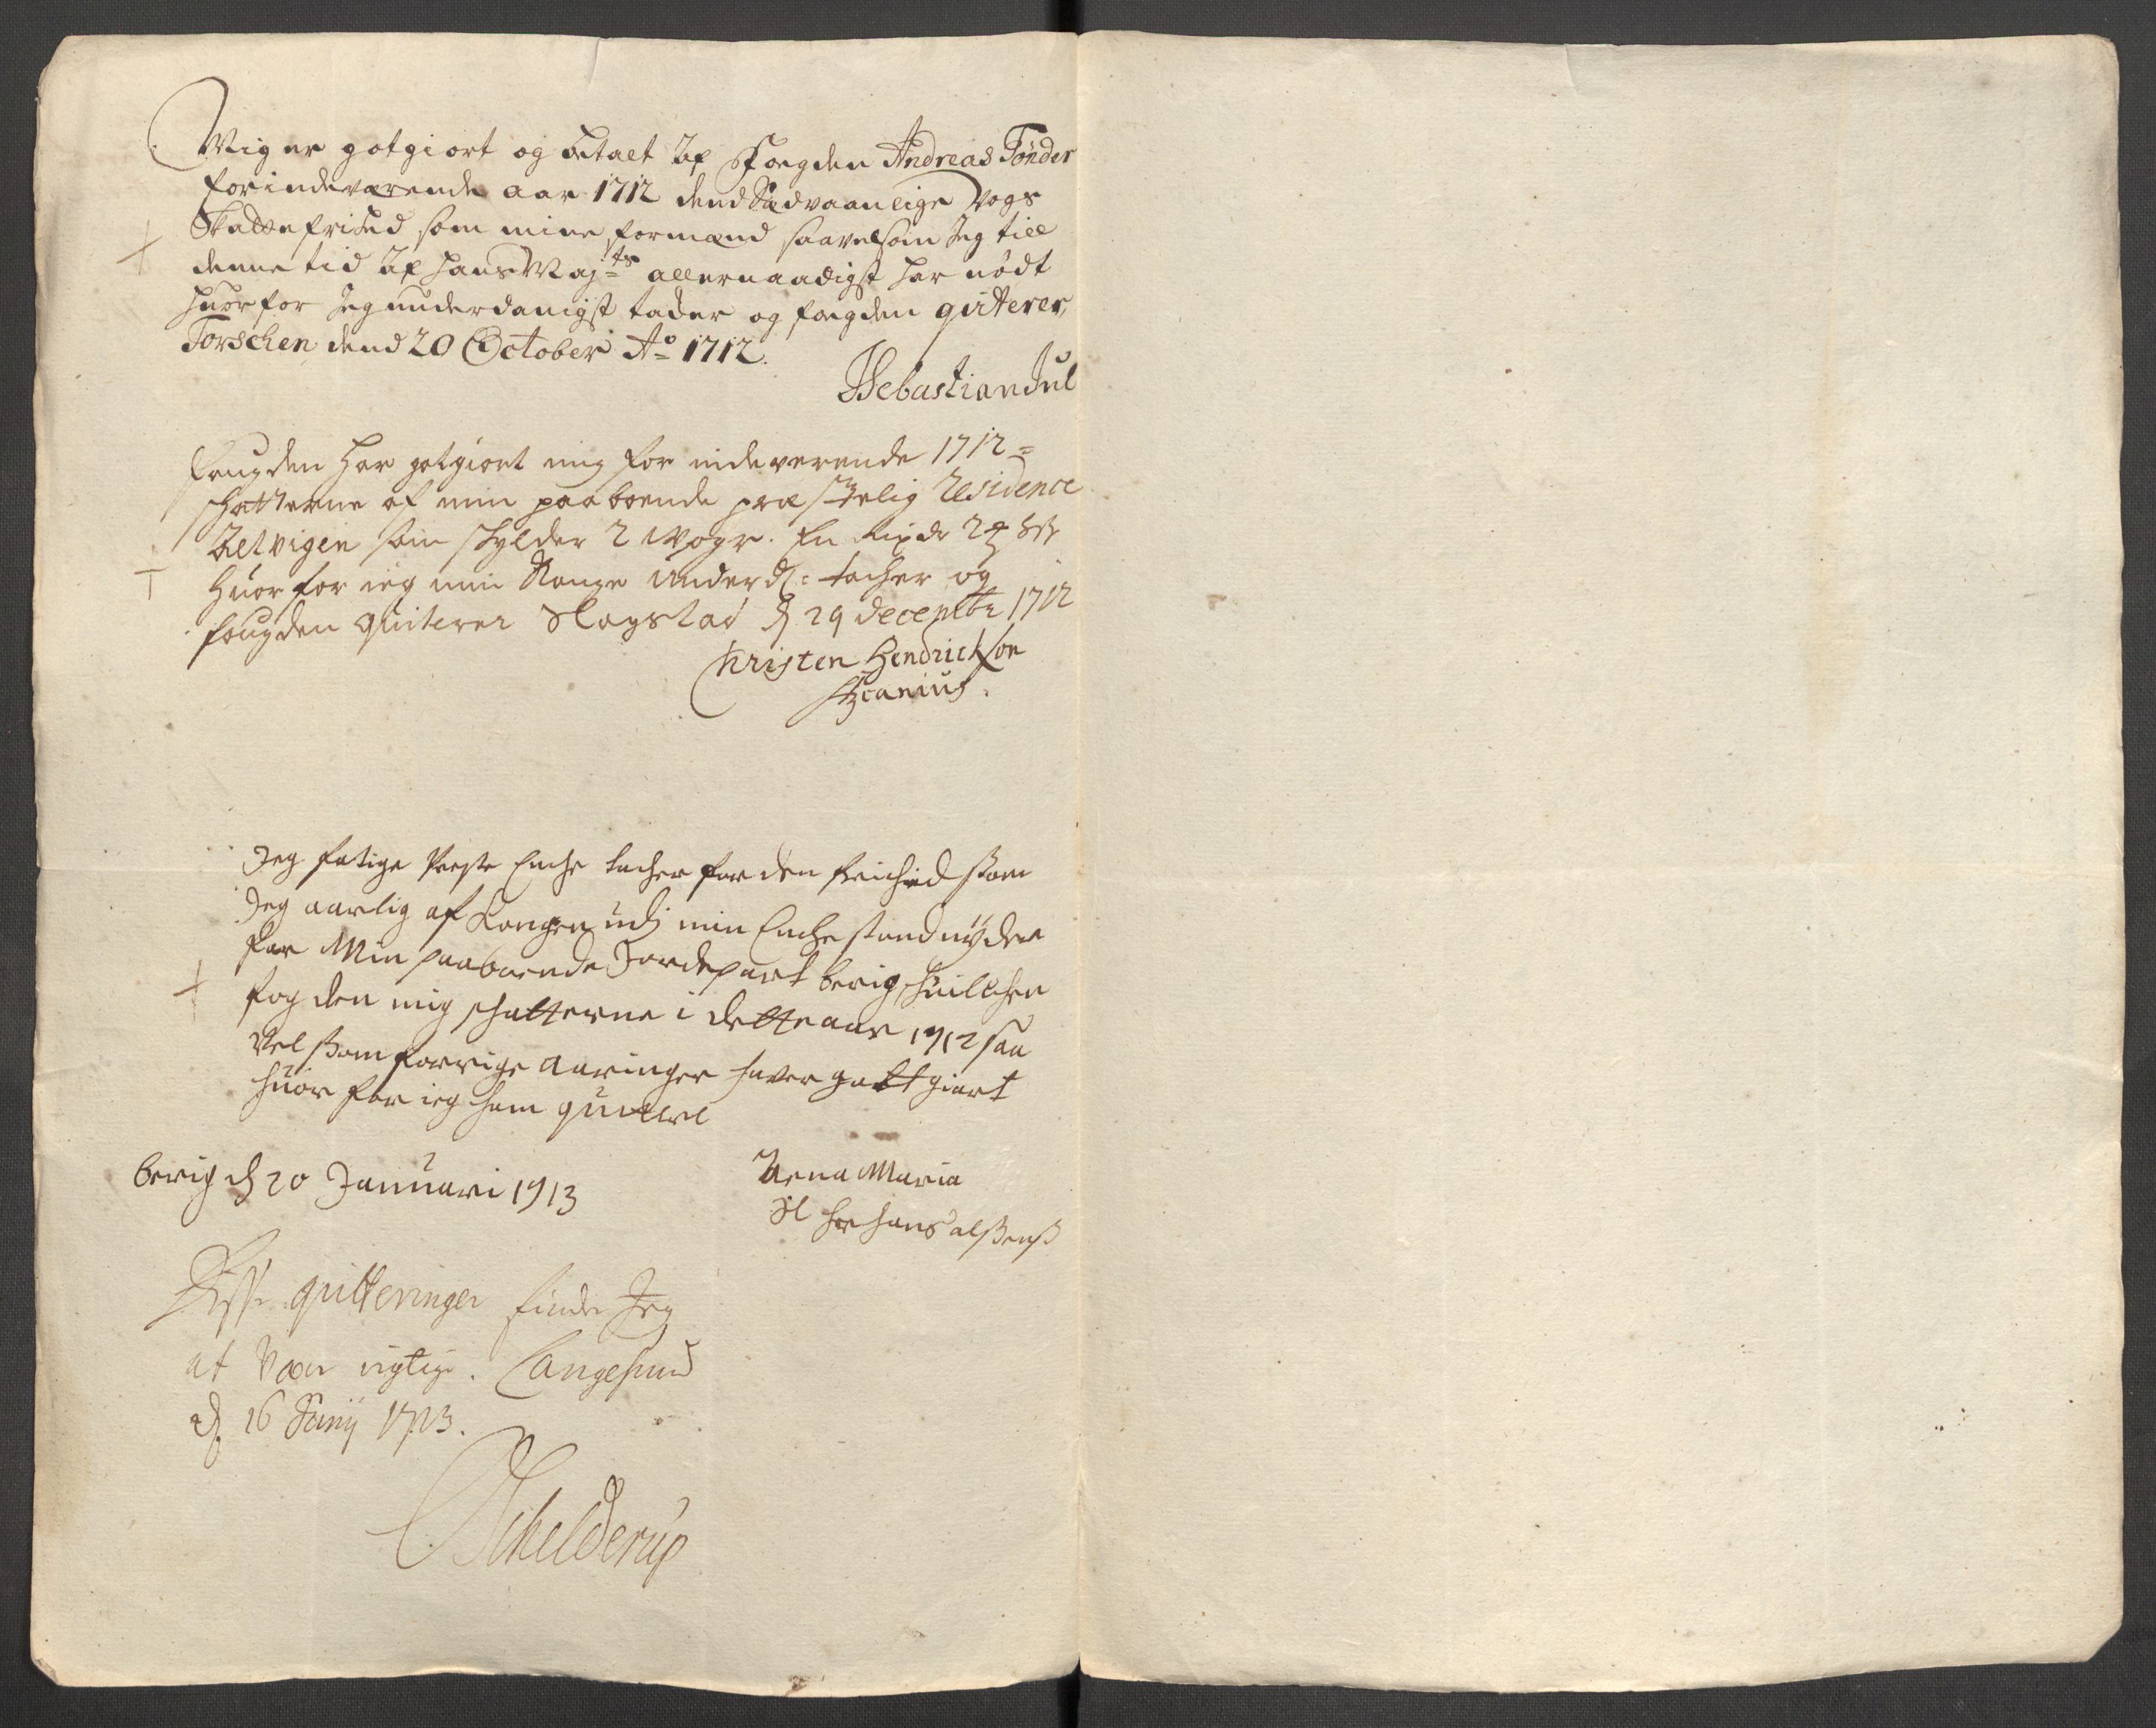 Mig er gotgiort og betalt af Fogden Andreas Tönder
for indeværende aar 1712 dend Sædvaanlige Vogs
Skattefrihed som mine formænd saavelsom Jeg till
denne tid af hans Maj:ts allernaadigst har nödt
huorfor Jeg underdanigst tacker og fogden qvitterer,
Torschen dend 20 October Ao 1712.
Sebastian Jul
Fougden har gotgiort mig for indeverende 1712 =
schatterne af min paaboende præstelig Residence
som skylder 2 Woger. En
huor for ieg min Konge underd: tacher og
fougden quiterer Slagstad d 29 decembr 1712
Christen Hendrichson
Jeg fatige Preste Enche tacher for den friehed som
Jeg aarlig af Kongen udj min Enchestand nyder
for Min paaboende Jordepart berig, huilchen
fogden mig schatterne i dette aar 1712 saa
Vel som forrige aaringer haver gottgiort
huor for ieg ham quitere
berig d 20 Januari 1713
Anna Maria
Sl hr hans
Disse qvitteringer finder Jeg
at Være rigtige. Langesund
d. 16 Junij 1713.
Schelderup